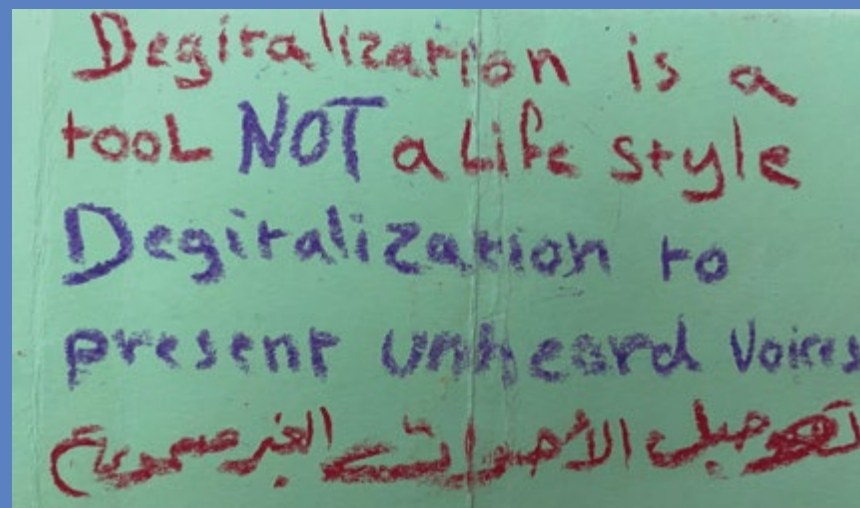 Degitalization is a
tool NOT a Life style
Degitalization to
present unheard Voices
توصيل الأصوات الغير مسموعة